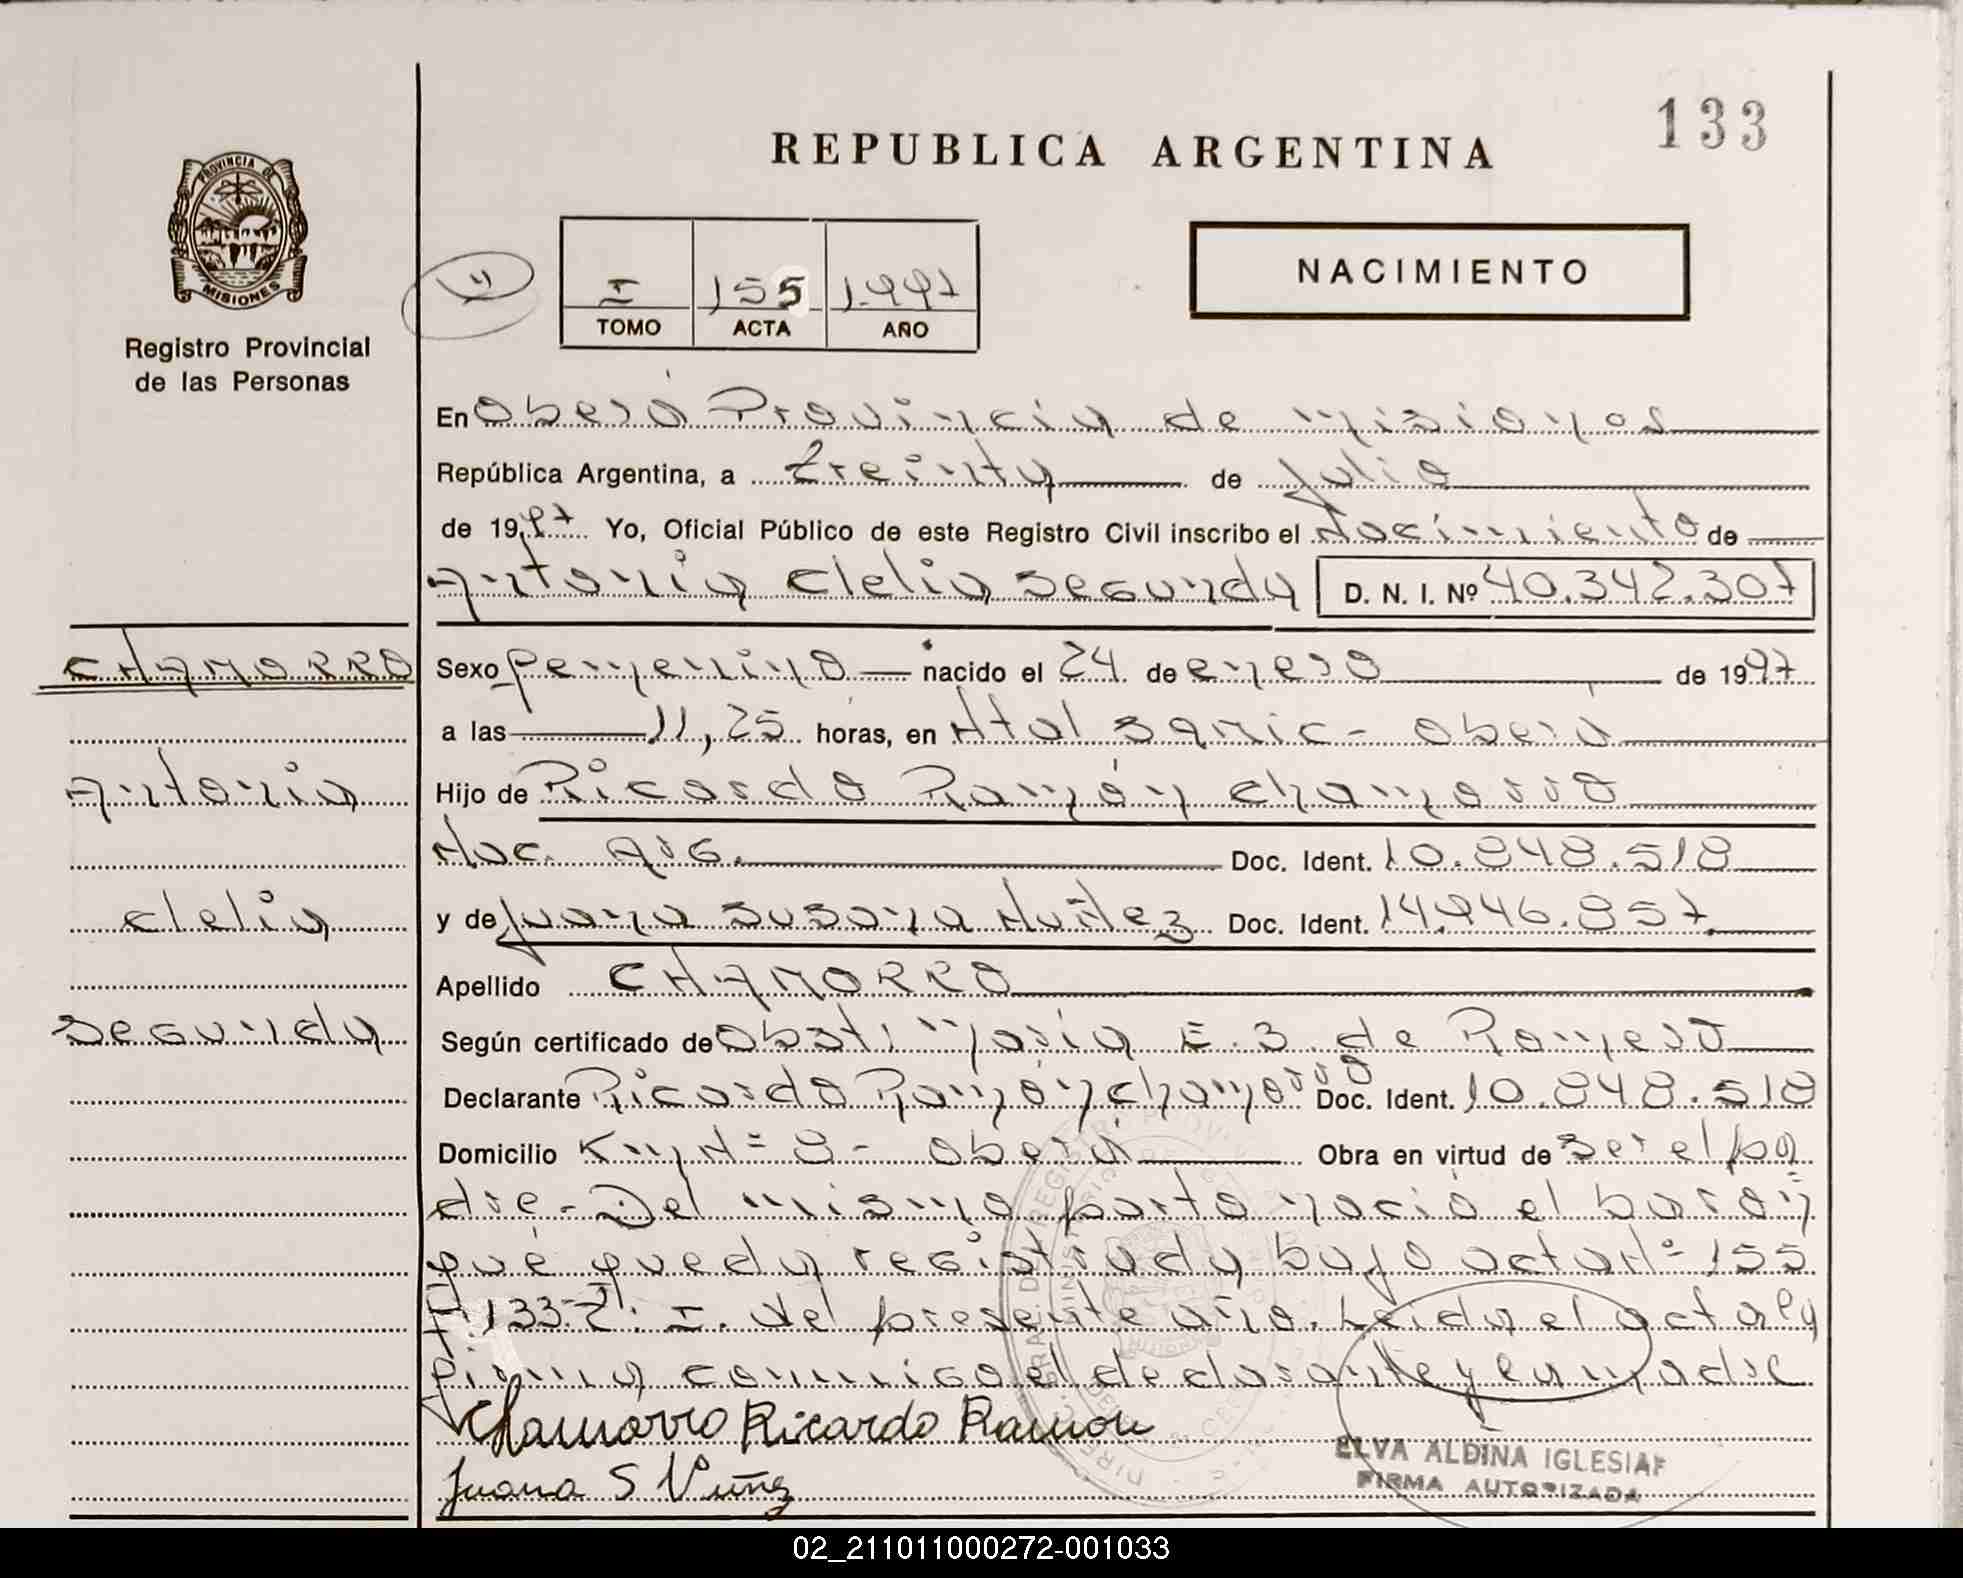 133
REPUBLICA ARGENTINA
PROVINCIA DE
MISIONES
Registro Provincial
de las Personas
I 155 1.997
TOMO ACTA AÑO
NACIMIENTO
En Oberá Provincia de Misiones
República Argentina, a treinta de Julio
de 1997 Yo, Oficial Público de este Registro Civil inscribo el Nacimiento de
Antonia Clelia Segunda D. N. I. Nº 40.342.307
CHAMORRO
Sexo femenino nacido el 24 de enero de 1997
a las 11,25 horas, en Htal Samic - Oberá
Antonia
Hijo de Ricardo Ramón Chamorro
Nac. Arg. Doc. Ident. 10.848.518
Clelia
y de Juana Susana Nuñez Doc. Ident. 14.946.857
Apellido CHAMORRO
Segunda
Según certificado de Obst. María E. S. de Romero
Declarante Ricardo Ramón Chamorro Doc. Ident. 10.848.518
Domicilio Km Nº 8 - Oberá Obra en virtud de ser el pa
dre - Del mismo parto nació el barón
que queda registrada bajo acta Nº 155
Fº 133 Tº I. del presente año. Leida el acta la
firma conmigo el declarante y la madre
Chamorro Ricardo Ramon
Juana S Nuñez
ELVA ALDINA IGLESIAS
FIRMA AUTORIZADA
02_211011000272-001033